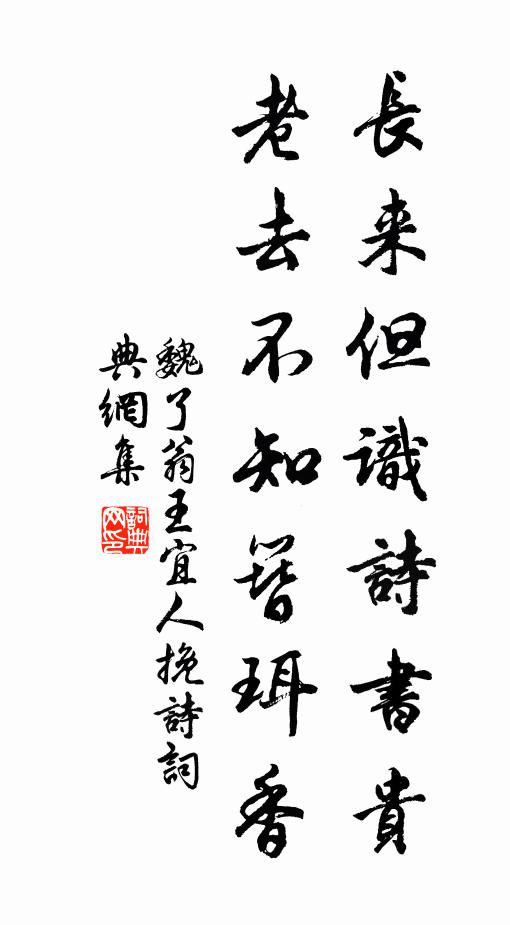 長来但識詩書貴
老去不知簪珥香
魏了翁王宜人挽詩詞
典網集
詞典
网印